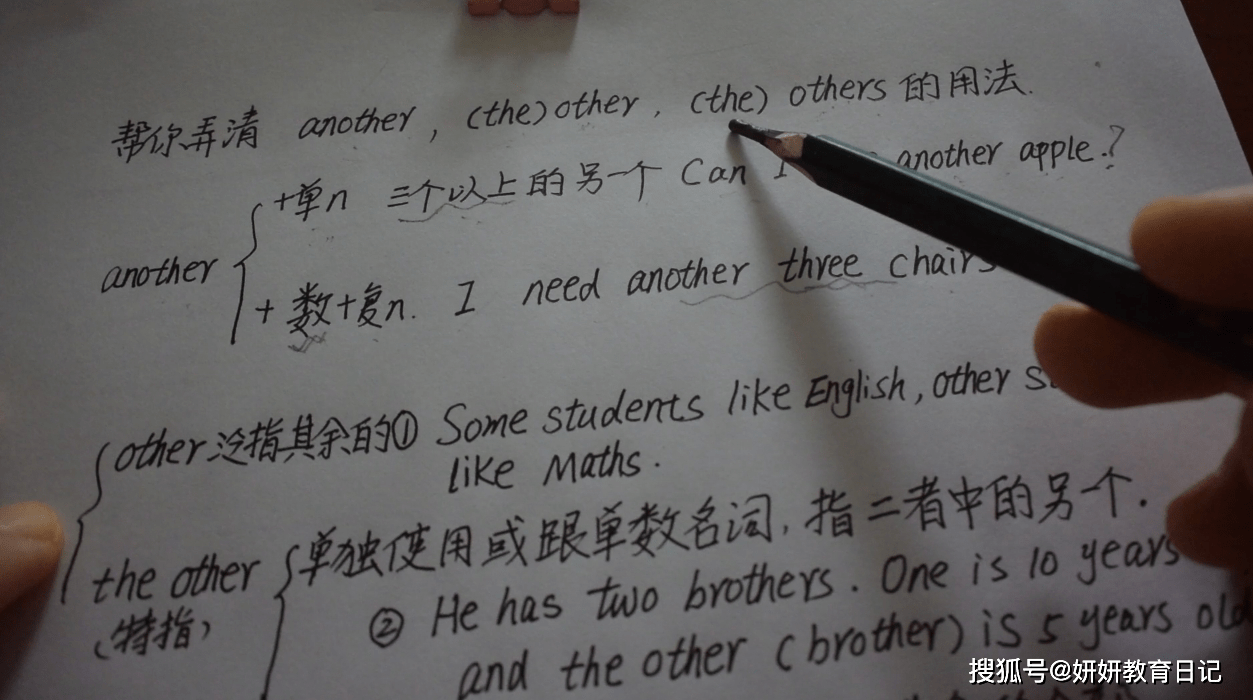 帮你弄清 another, (the) other, (the) others 的用法.
+单n 三个以上的另一个 Can I another apple?
another
+ 数+复n. I need another three chairs
other 泛指其余的① Some students like English, other
like Maths.
the other 单独使用或跟单数名词, 指二者中的另一个.
(特指) ② He has two brothers. One is 10 years
and the other (brother) is 5 years old
搜狐号@妍妍教育日记